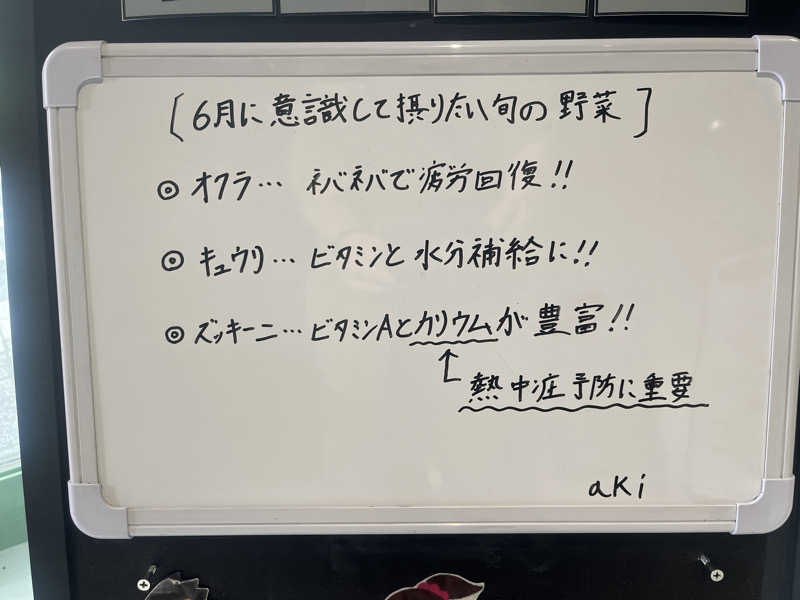 [6月に意識して摂りたい旬の野菜]
◎ オクラ… ネバネバで疲労回復!!
◎ キュウリ… ビタミンと水分補給に!!
◎ ズッキーニ… ビタミンAとカリウムが豊富!!
↑ 熱中症予防に重要
aki